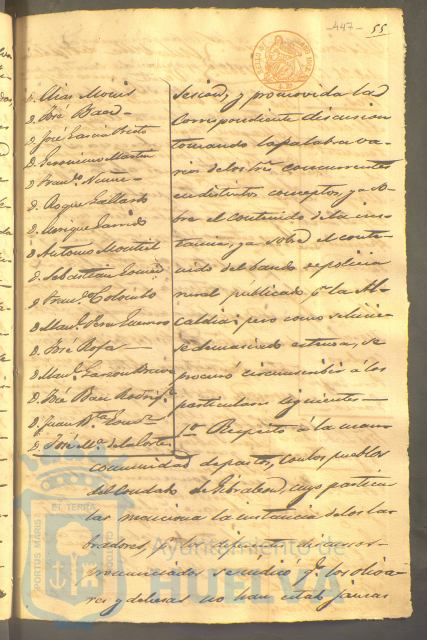 447 55
D. Elias Mouis
D. José Baez
D. José Garcia Prieto
D. Geronimo Martin
D. Franco. Nuñez
D. Roque Gallardo
D. Enrique Garrido
D. Antonio Montiel
D. Sebastian Gomez
D. Franco. Colombo
D. Manl. Perez Guerrero
D. José Rofa
D. Manl. Garzon
D. José Baez Rodrigz.
D. Juan
D. José Ma. de la Corte
Sesion, y promovida la
correspondiente discusion
tomando la palabra va-
rios de los Sres. concurrentes
en distintos conceptos, ya so-
bre el contenido de la ins-
tancia, ya sobre el conte-
nido del bando de policia
rural publicado pr. la Al-
caldia; pero como se hiciese
demasiado estensa, se
procuró circunscribir á los
particulares siguientes
1o. Respecto á la man-
comunidad de pastos, con los pueblos
del Condado de Gibraleon, cuyo particu-
lar menciona la instancia de los la-
bradores,
y qe. los oliva-
res y dehesas no han estado jamas
PORTUS MARIS ET TERRA CUSTODIA
Ayuntamiento de
HUELVA